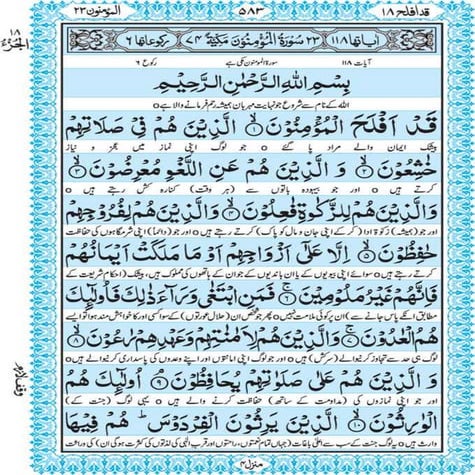 قد افلح ١٨ ٥٨٣ المؤمنون ٢٣
اٰیاتها ١١٨ ٢٣ سُوْرَةُ الْمُؤْمِنُوْنَ مَكِّيَّةٌ ٧٤ رکوعاتها ٦
آیات ١١٨ سورۃ المومنون مکی ہے رکوع ٦
الجزء ١٨
بِسْمِ اللهِ الرَّحْمٰنِ الرَّحِيْمِ
اللہ کے نام سے شروع جو نہایت مہربان ہمیشہ رحم فرمانے والا ہے
قَدْ اَفْلَحَ الْمُؤْمِنُوْنَ ۙ١ الَّذِيْنَ هُمْ فِيْ صَلَاتِهِمْ
بیشک ایمان والے مراد پا گئے جو لوگ اپنی نماز میں عجز و نیاز
خٰشِعُوْنَ ۙ٢ وَ الَّذِيْنَ هُمْ عَنِ اللَّغْوِ مُعْرِضُوْنَ ۙ٣
کرتے ہیں اور جو بیہودہ باتوں سے (ہر وقت) کنارہ کش رہتے ہیں
وَالَّذِيْنَ هُمْ لِلزَّكٰوةِ فٰعِلُوْنَ ۙ٤ وَالَّذِيْنَ هُمْ لِفُرُوْجِهِمْ
اور جو (ہمیشہ) زکوٰۃ ادا (کر کے اپنی جان و مال کو پاک) کرتے رہتے ہیں اور جو (دائماً) اپنی شرم گاہوں کی حفاظت
حٰفِظُوْنَ ۙ٥ اِلَّا عَلٰٓى اَزْوَاجِهِمْ اَوْ مَا مَلَكَتْ اَيْمَانُهُمْ
کرتے رہتے ہیں سوائے اپنی بیویوں کے یا ان باندیوں کے جو ان کے ہاتھوں کی مملوک ہیں، بیشک (احکامِ شریعت کے
فَاِنَّهُمْ غَيْرُ مَلُوْمِيْنَ ۚ٦ فَمَنِ ابْتَغٰى وَرَآءَ ذٰلِكَ فَاُولٰٓئِكَ
مطابق انکے پاس جانے سے) ان پر کوئی ملامت نہیں پھر جو شخص ان (حلال عورتوں) کے سوا کسی اور کا خواہش مند ہوا تو ایسے
هُمُ الْعٰدُوْنَ ۚ٧ وَالَّذِيْنَ هُمْ لِاَمٰنٰتِهِمْ وَعَهْدِهِمْ رَاعُوْنَ ۙ٨
لوگ ہی حد سے تجاوز کرنے والے (سرکش) ہیں اور جو لوگ اپنی امانتوں اور اپنے وعدوں کی پاسداری کرنے والے ہیں
وقف لازم
وَ الَّذِيْنَ هُمْ عَلٰى صَلَوٰتِهِمْ يُحَافِظُوْنَ ۘ٩ اُولٰٓئِكَ هُمُ
اور جو اپنی نمازوں کی (مداومت کے ساتھ) حفاظت کرنے والے ہیں یہی لوگ (جنت کے)
الْوٰرِثُوْنَ ۙ١٠ الَّذِيْنَ يَرِثُوْنَ الْفِرْدَوْسَ ؕ هُمْ فِيْهَا
وارث ہیں یہ لوگ جنت کے سب سے اعلیٰ باغات (جہاں تمام نعمتوں، راحتوں اور قربِ الٰہی کی لذتوں کی کثرت ہوگی ان) کی وراثت
منزل ٤